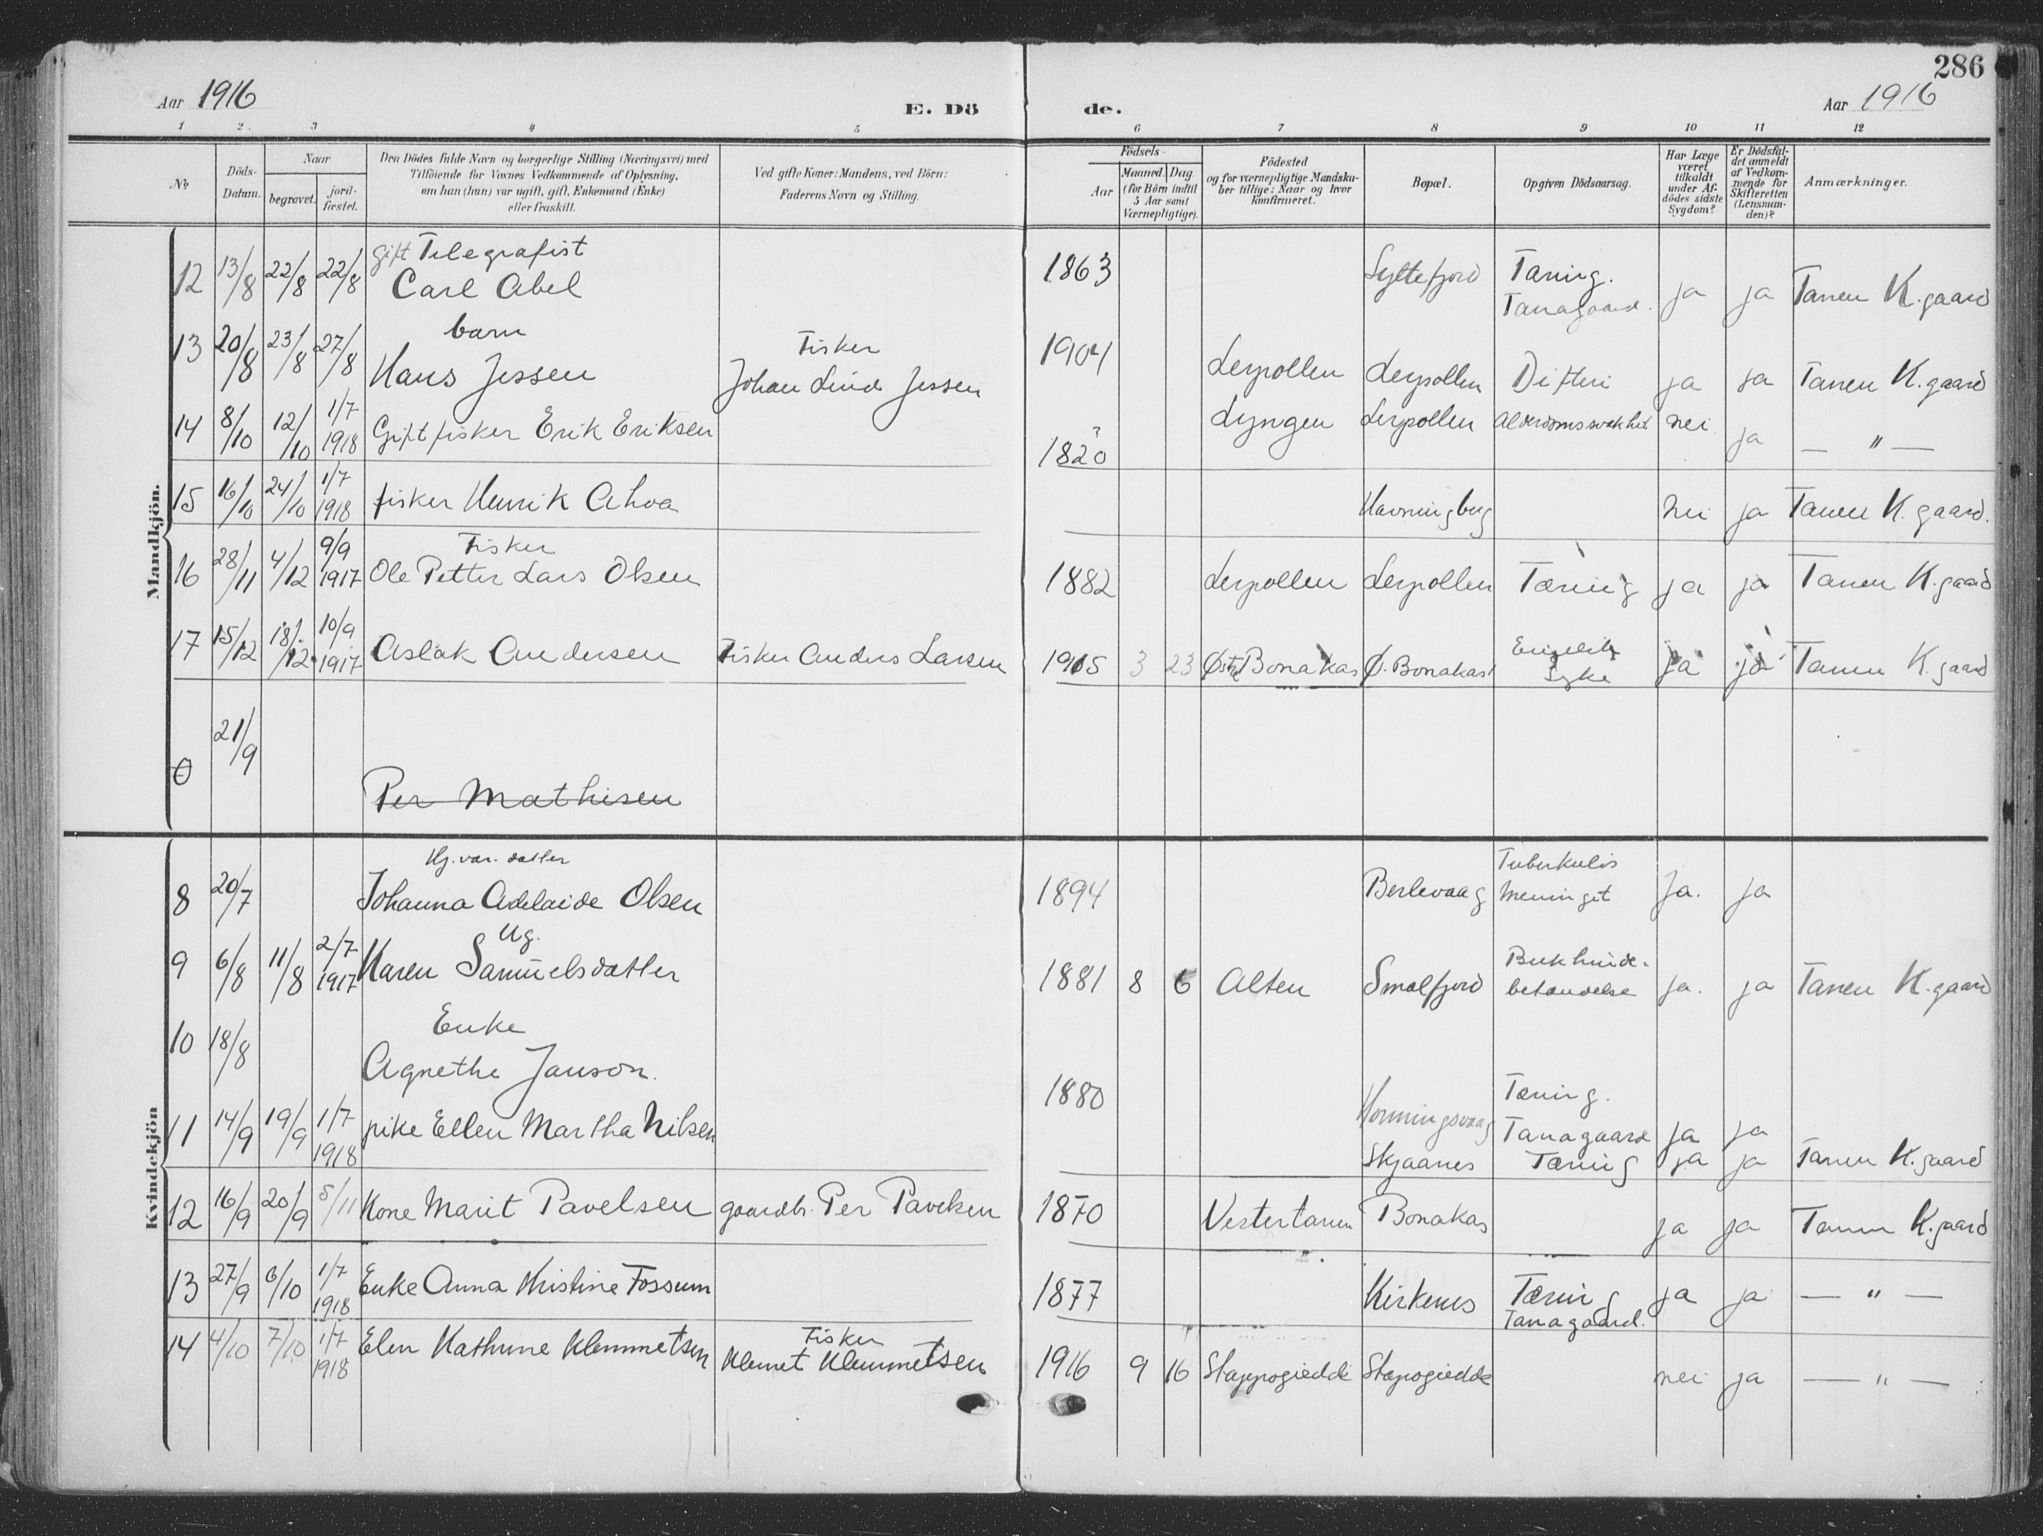 286
Aar 1916
E. Dö
de.
Aar 1916
1 2 3 4 5 6 7 8 9 10 11 12
No
Döds-Datum.
Naar
begravet.
jord-fæstet.
Den Dödes fulde Navn og borgerlige Stilling (Næringsvei) med
Tilföiende for Voxnes Vedkommende af Oplysning,
om han (hun) var ugift, gift, Enkemand (Enke)
eller fraskilt.
Ved gifte Koner: Mandens, ved Börn:
Faderens Navn og Stilling.
Födsels-
Aar
Maaned. Dag
(for Börn indtil
5 Aar samt
Værnepligtige).
Födested
og for værnepligtige Mandska-
ber tillige: Naar og hvor
konfirmeret.
Bopæl.
Opgiven Dödsaarsag.
Har Læge
været
tilkaldt
under Af-
dödes sidste
Sygdom?
Er Dödsfal-
det anmeldt
af Vedkom-
mende for
Skifteretten
(Lensman-
den)?
Anmærkninger.
Mandkjön.
gift Telegrafist
12 13/8 22/8 22/8 Carl Abel 1863 Syltefjord Tæring. Tanagaard. ja ja Tanen K.gaard
barn
13 20/8 23/8 27/8 Hans Jessen Fisker Johan Lind Jessen 1904 Lerpollen Lerpollen Difteri ja ja Tanen K.gaard
14 8/10 12/10 1/7 1918 Gift fisker Erik Eriksen 1820 ? Lyngen Lerpollen Alderdomssvakhet nei ja — " —
15 16/10 24/10 1/7 1918 fisker Henrik Ahva Havningberg nei ja Tanen K. gaard.
Fisker
16 28/11 4/12 9/9 1917 Ole Petter Lars Olsen 1882 Lerpollen Lerpollen Tæring ja ja Tanen K.gaard
17 15/12 18/12 10/9 1917 Aslak Andersen Fisker Anders Larsen 1915 3 23 Østre Bonakas Ø. Bonakas Engelsk Syke ja ja Tanen K.gaard
0 21/9 Per Mathisen
Kvindekjön
Hj.vær. datter
8 20/7 Johanna Adelaide Olsen 1894 Berlevaag Tuberkuløs meningit Ja. ja
Ug.
9 6/8 11/8 2/7 1917 Karen Samuelsdatter 1881 8 6 Alten Smalfjord Bukhinde-betændelse ja. ja Tanen K.gaard
Enke
10 18/8 Agnethe Janson. 1880 Honningsvaag Tæring. Tanagaard ja ja
11 14/9 19/9 1/7 1918 pike Ellen Martha Nilsen Skjaanes Tæring ja ja Tanen K.gaard
12 16/9 20/9 5/11 Kone Marit Pavelsen gaardbr. Per Pavelsen 1870 Vestertanen Bonakas ja ja Tanen K.gaard
13 27/9 6/10 1/7 1918 Enke Anna Kristine Fossum 1877 Kirkenes Tæring Tanagaard. ja ja — " —
14 4/10 7/10 1/7 1918 Elen Kathrine Klemmetsen Fisker Klemet Klemmetsen 1916 9 16 Stappogiedde Stapogiedde nei ja — " —